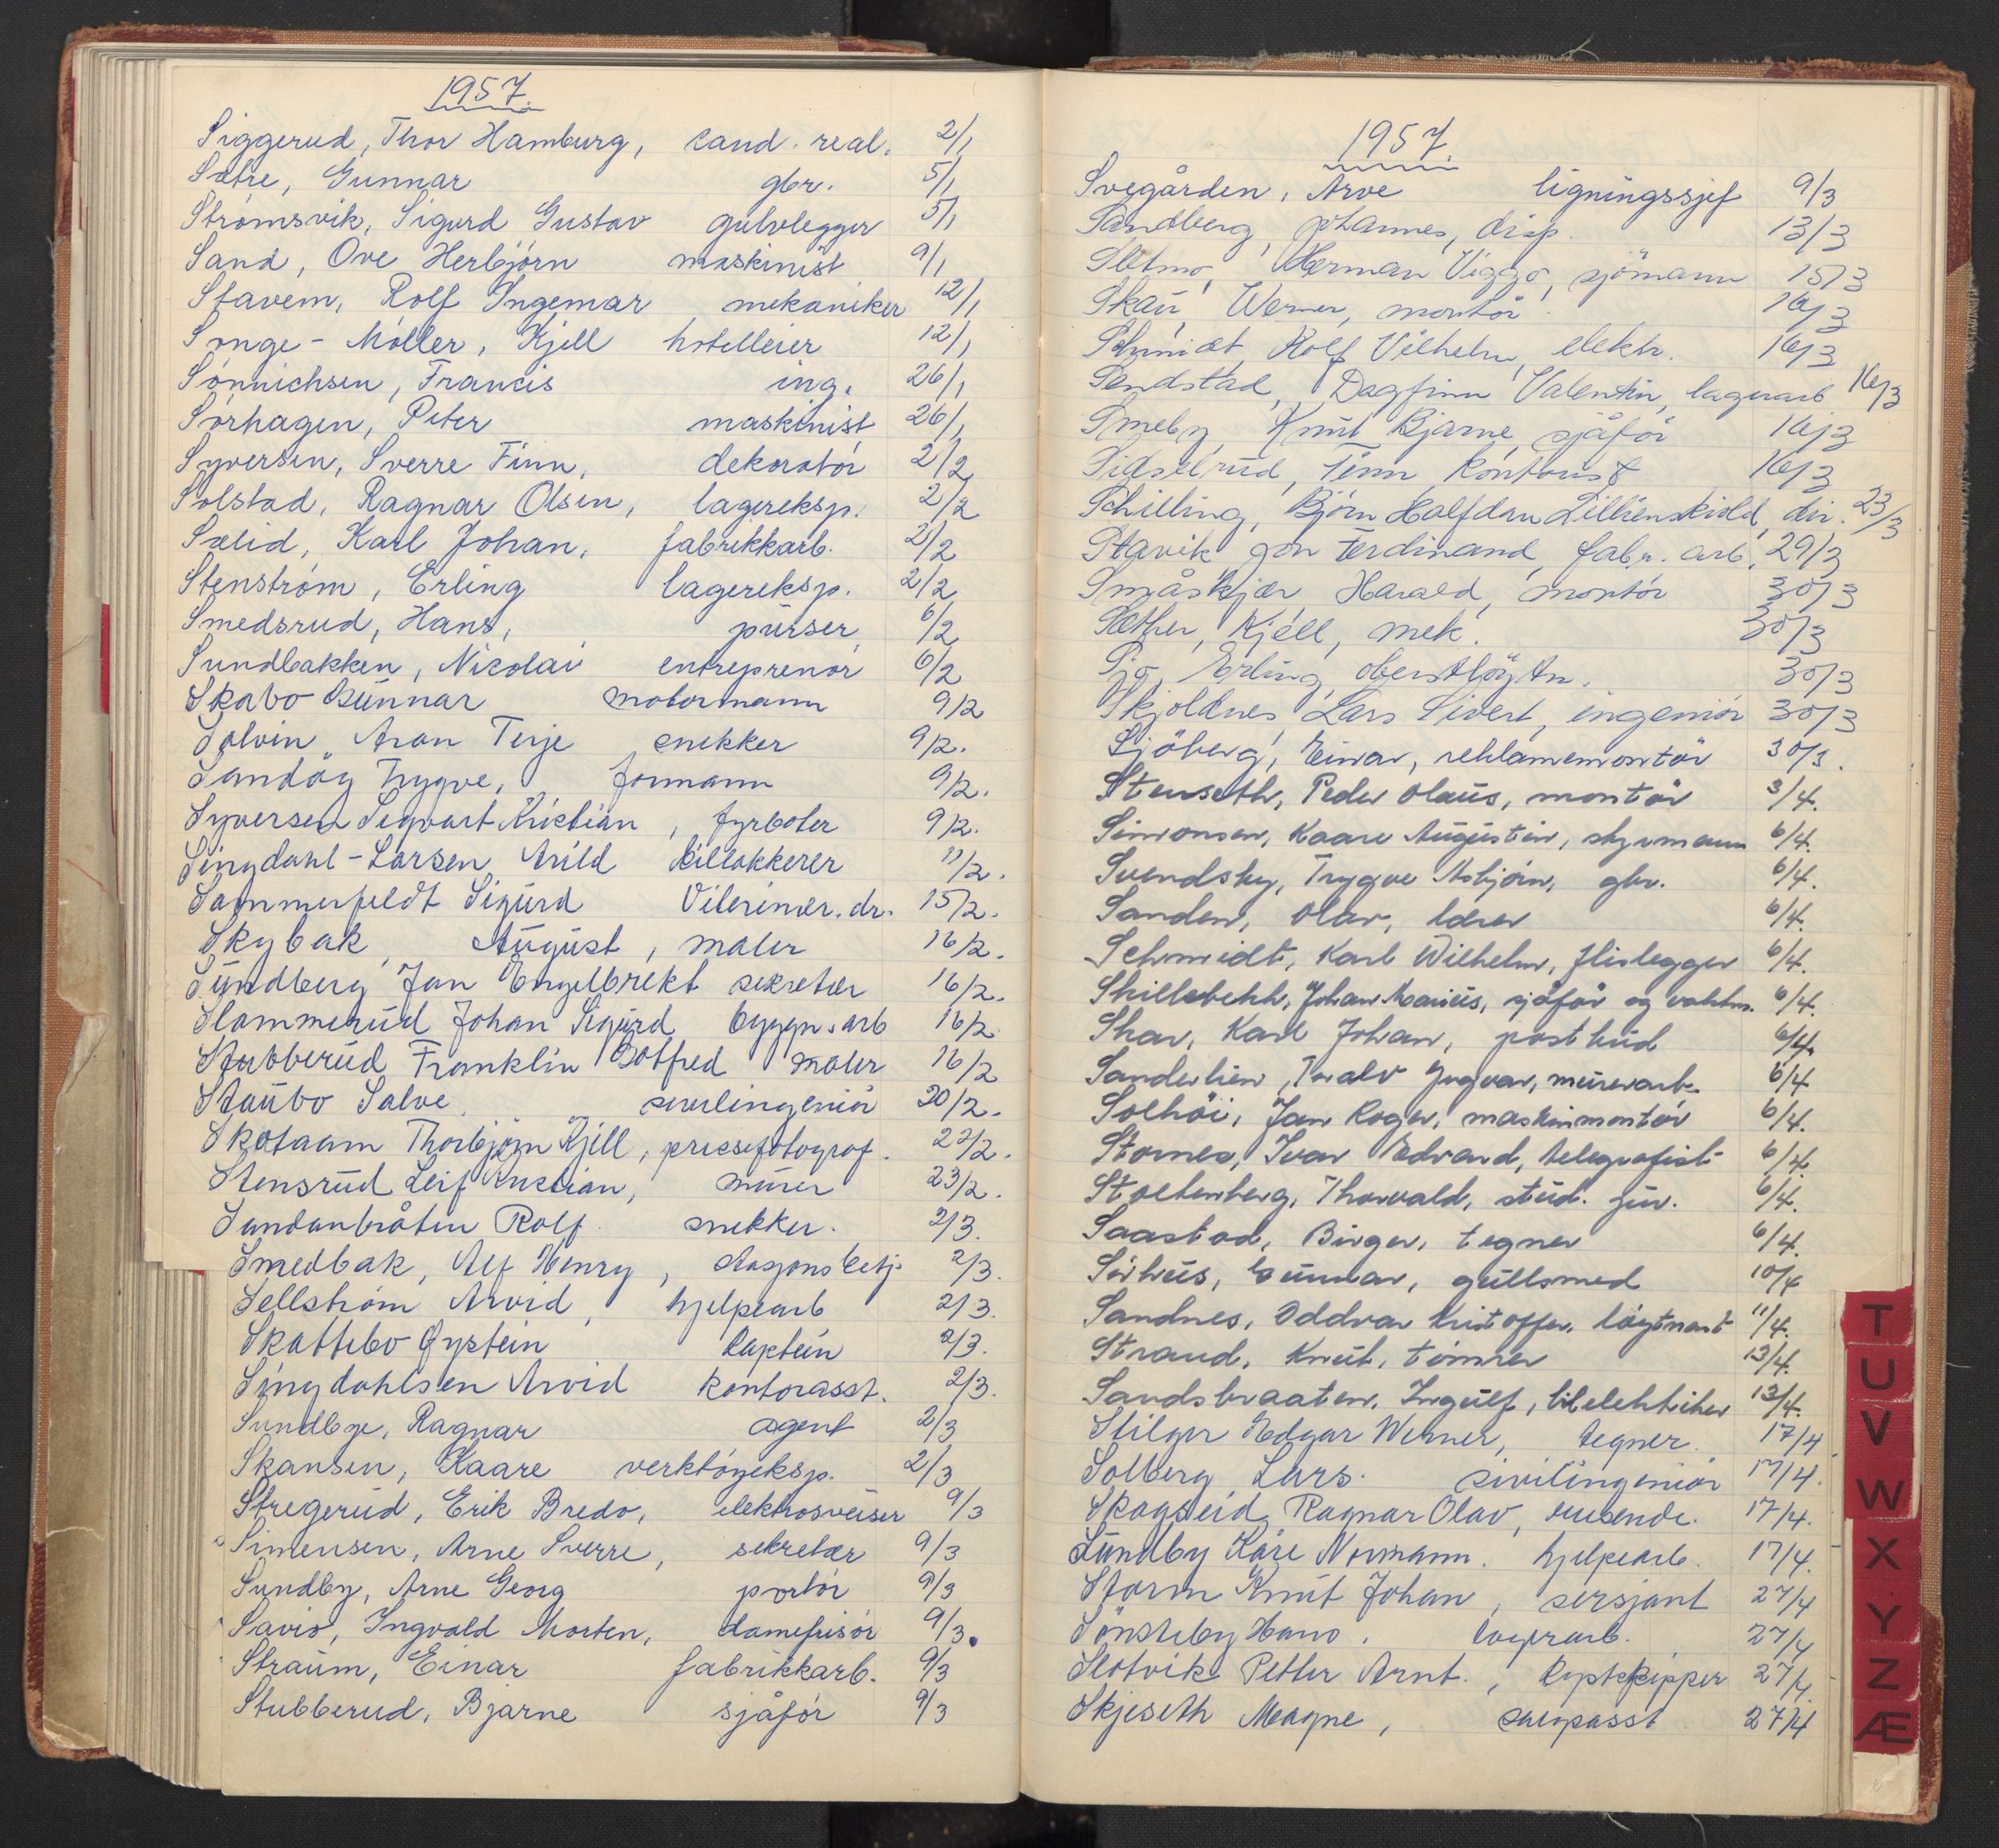 1957.
Siggerud, Thor Hamburg, cand. real. 2/1
Sætre, Gunnar gbr. 5/1
Strømsvik, Sigurd Gustav gulvlegger 5/1
Sand, Ove Herbjørn maskinist 9/1
Stavem, Rolf Ingemar mekaniker 12/1
Songe-Møller, Kjell hotelleier 12/1
Sønnichsen, Francis ing. 26/1
Sørhagen, Peter maskinist 26/1
Syversen, Sverre Finn, dekoratör 2/2
Solstad, Ragnar Olsen, lagereksp. 2/2
Sælid, Karl Johan, fabrikkarb. 2/2
Stenstrøm, Erling lagereksp. 2/2
Smedsrud, Hans, purser 6/2
Sundbakken, Nicolai entreprenør 6/2
Skabo Gunnar motormann 9/2
Solvin, Aron Terje snekker 9/2.
Sandøy Trygve, formann 9/2.
Syversen Sigvart Kristian, fyrbøter 9/2.
Singdahl-Larsen Arild billakkerer 11/2.
Sommerfeldt Sigurd Veterinær. dr. 15/2.
Skybak, August, maler 16/2.
Sundberg Jan Engelbrekt sekretær 16/2.
Slammerud Johan Sigurd byggn.arb 16/2
Stubberud Franklin Gotfred maler 16/2
Staubo Salve sivilingeniør 20/2.
Skotaam Thorbjørn Kjell, pressefotograf. 22/2.
Stensrud Leif Kristian, murer 23/2.
Sandanbråten Rolf snekker. 2/3.
Smedbak, Alf Henry, stasjonsbetj. 2/3.
Sellstrøm Arvid, hjelpearb 2/3.
Skattebo Øystein Kaptein 2/3.
Singdahlsen Arvid kontorasst. 2/3.
Sundbye, Ragnar agent 2/3
Skansen, Kaare verktøyeksp. 2/3
Stregerud, Erik Bredo, elektrosveiser 9/3
Simensen, Arne Sverre, sekretær 9/3
Sundby, Arne Georg portör 9/3
Savio, Ingvald Morten, damefrisör 9/3.
Straum, Einar fabrikkarb. 9/3
Stubberud, Bjarne sjåför 9/3
1957.
Svegården, Arve ligningssjef 9/3
Sandberg, Johannes, disp. 13/3
Sletmo, Herman Viggo, sjömann 15/3
Skau, Werner, montör. 16/3
Schmidt, Rolf Vilhelm, elektr. 16/3
Sendstad, Dagfinn Valentin, lagerarb 16/3
Smeby, Knut Bjarne, sjåför 16/3
Sidselrud, Finn kontorist 16/3
Schilling, Bjørn Halfdan Lillienskiold, dir. 23/3
Stavik, Jon Ferdinand, fabr. arb. 29/3
Småskjær Harald, montör 30/3
Sæther, Kjell, mek. 30/3
Sjø, Erling, oberstløytn. 30/3
Skjoldnes Lars Sivert, ingeniör 30/3
Sjöberg, Einar, reklamemontör 30/3.
Stenseth, Peder Olaus, montör 3/4.
Simonsen, Kaare Augustin, styrmann 6/4.
Svendsby, Trygve Asbjørn, gbr. 6/4.
Sanden, Olav, lærer 6/4.
Schmidt, Karl Wilhelm, flislegger 6/4.
Skillebekk, Johan Marius, sjåför og vaktm. 6/4.
Skar, Karl Johan, postbud 6/4.
Sanderlien, Toralv Yngvar, murerarb. 6/4
Solhöi, Jan Roger, maskinmontör 6/4.
Stornes, Ivar Edvard, telegrafist 6/4.
Stoltenberg, Thorvald, stud. jur. 6/4.
Saastad, Birger, tegner 6/4.
Sörhus, Gunnar, gullsmed 10/4
Sandnes, Oddvar Kristoffer, löytnant 11/4.
Strand, Knut, tömrer 13/4.
Sandsbraaten, Ingulf, bilelektriker 13/4.
Stilger Edgar Werner, tegner. 17/4
Solberg Lars. sivilingeniør 17/4.
Skogseid Ragnar Olav, reisende. 17/4.
Sundby Kåre Normann. hjelpearb. 17/4.
Storm Knut Johan, sersjant 27/4
Sönsteby Hans. lagerarb. 27/4
Slotvik Petter Arnt., 27/4.
Skjeseth Magne, 27/4
T
U
V
W
X
Y
Z
Æ